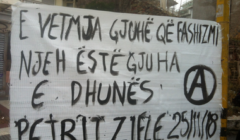 E VETMJA GJUHË QË FASHIZMI
NJEH ËSTË GJUHA
E DHUNËS
PETRIT ZIFLE 25/11/08